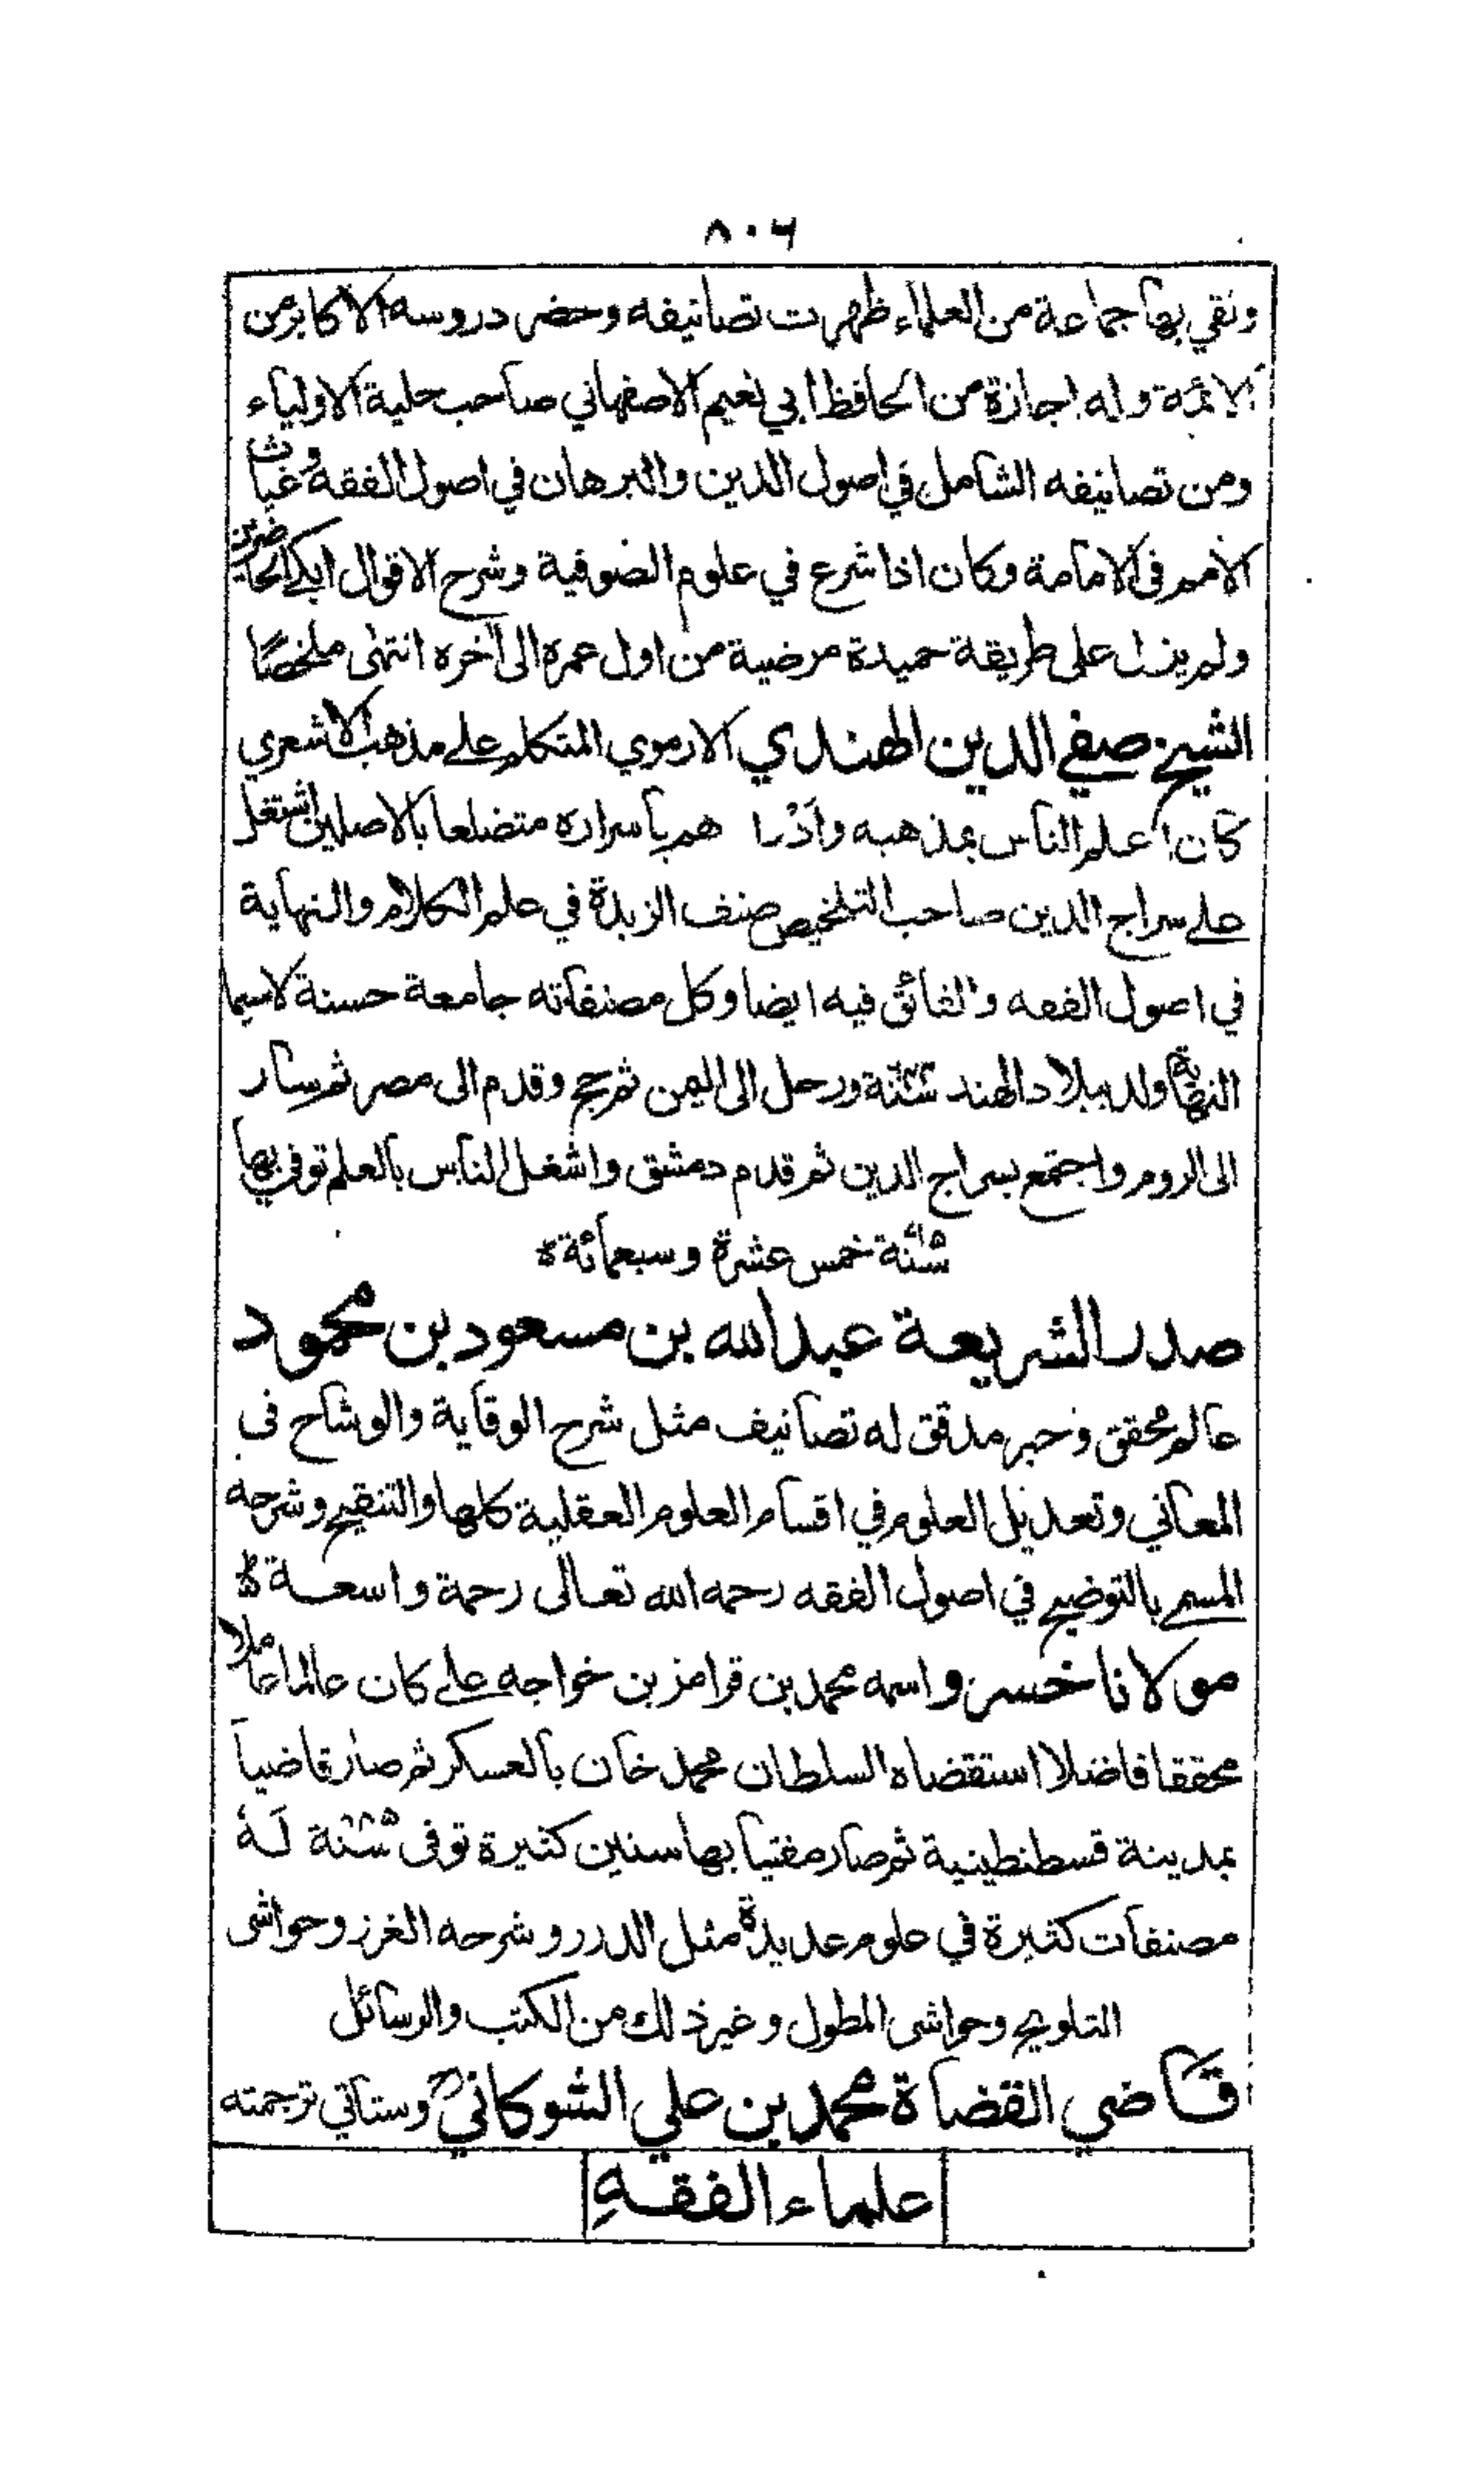 ٨٠٦
ولقي بها جماعة من العلماء ظهرت تصانيفه وحضر دروسه الاكابر من
الائمة وله اجازة من الحافظ ابي نعيم الاصفهاني صاحب حلية الاولياء
ومن تصانيفه الشامل في اصول الدين والبرهان في اصول الفقه وغياث
الامم في الامامة وكان اذا شرع في علوم الصوفية وشرح الاقوال ابكى الحاضرين
ولم يزل على طريقة حميدة مرضية من اول عمره الى آخره انتهى ملخصًا
الشيخ صفي الدين الهندي الارموي المتكلم على مذهب الاشعري
كان اعلم الناس بمذهبه وادراهم بأسراره متضلعا بالاصلين اشتغل
على سراج الدين صاحب التلخيص صنف الزبدة في علم الكلام والنهاية
في اصول الفقه والفائق فيه ايضا وكل مصنفاته جامعة حسنة لاسيما
النهاية ولد ببلاد الهند سنة ورحل الى اليمن ثم حج وقدم الى مصر ثم سار
الى الروم واجتمع بسراج الدين ثم قدم دمشق واشغل الناس بالعلم توفي بها
سنة خمس عشرة وسبعمائة ه
صدر الشريعة عبد الله بن مسعود بن محمود
عالم محقق وحبر مدقق له تصانيف مثل شرح الوقاية والوشاح في
المعاني وتعديل العلوم في اقسام العلوم العقلية كلها والتنقيح وشرحه
المسمى بالتوضيح في اصول الفقه رحمه الله تعالى رحمة واسعة ه
مولانا خسرو واسمه محمد بن قرامز بن خواجه على كان عالما عاملا
محققا فاضلا استقضاه السلطان محمد خان بالعسكر ثم صار قاضيا
بمدينة قسطنطينية ثم صار مفتيا بها سنين كثيرة توفى سنة له
مصنفات كثيرة في علوم عديدة مثل الدرر وشرحه الغرر وحواشى
التلويح وحواشى المطول وغير ذلك من الكتب والرسائل
قاضي القضاة محمد بن علي الشوكاني وستأتي ترجمته
علماء الفقه